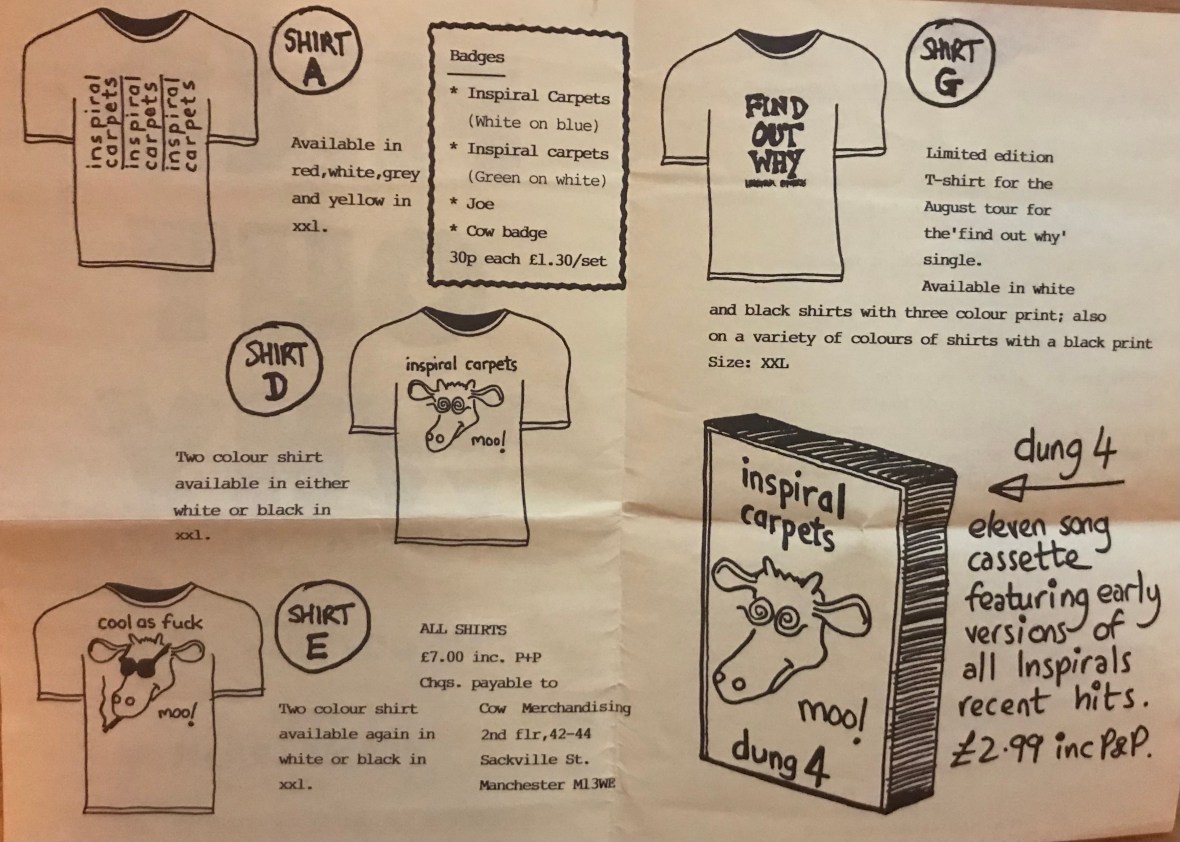 inspiral
carpets
inspiral
carpets
inspiral
carpets
SHIRT
A
Available in
red,white,grey
and yellow in
xxl.
Badges
* Inspiral Carpets
(White on blue)
* Inspiral carpets
(Green on white)
* Joe
* Cow badge
30p each £1.30/set
SHIRT
D
Two colour shirt
available in either
white or black in
xxl.
inspiral carpets
moo!
cool as fuck
moo!
SHIRT
E
Two colour shirt
available again in
white or black in
xxl.
ALL SHIRTS
£7.00 inc. P+P
Chqs. payable to
Cow Merchandising
2nd flr,42-44
Sackville St.
Manchester M13WE
FIND
OUT
WHY
SHIRT
G
Limited edition
T-shirt for the
August tour for
the'find out why'
single.
Available in white
and black shirts with three colour print; also
on a variety of colours of shirts with a black print
Size: XXL
inspiral
carpets
moo!
dung 4
dung 4
eleven song
cassette
featuring early
versions of
all Inspirals
recent hits.
£2.99 inc P&P.